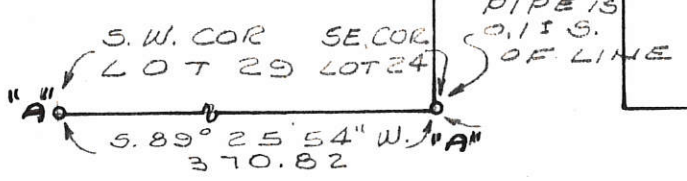 PIPE IS
0.1 S.
OF LINE
S. W. COR
LOT 29
SE. COR
LOT 24
"A"
S. 89° 25' 54" W.
370.82
"A"